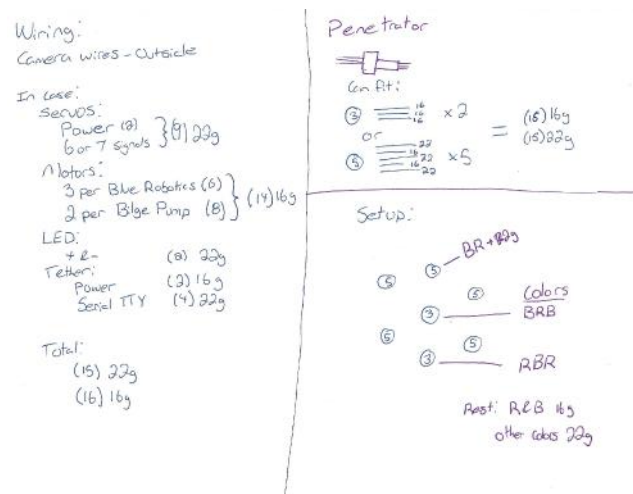 Wiring:
Camera wires - Outside
In case:
Servos:
Power (2)
6 or 7 signals } (9) 22g
Motors:
3 per Blue Robotics (6)
2 per Bilge Pump (8) } (14) 16g
LED:
+ & - (2) 22g
Tether:
Power (2) 16g
Serial TTY (4) 22g
Total:
(15) 22g
(16) 16g
Penetrator
Can fit:
③ 16 16 16 × 2
or
⑤ 22 16 22 16 22 × 5
= (16) 16g
(15) 22g
Setup:
⑤ BR + 22g
⑤
⑤ Colors
③ BRB
⑤
⑤
③ RBR
Rest: R&B 16g
other colors 22g